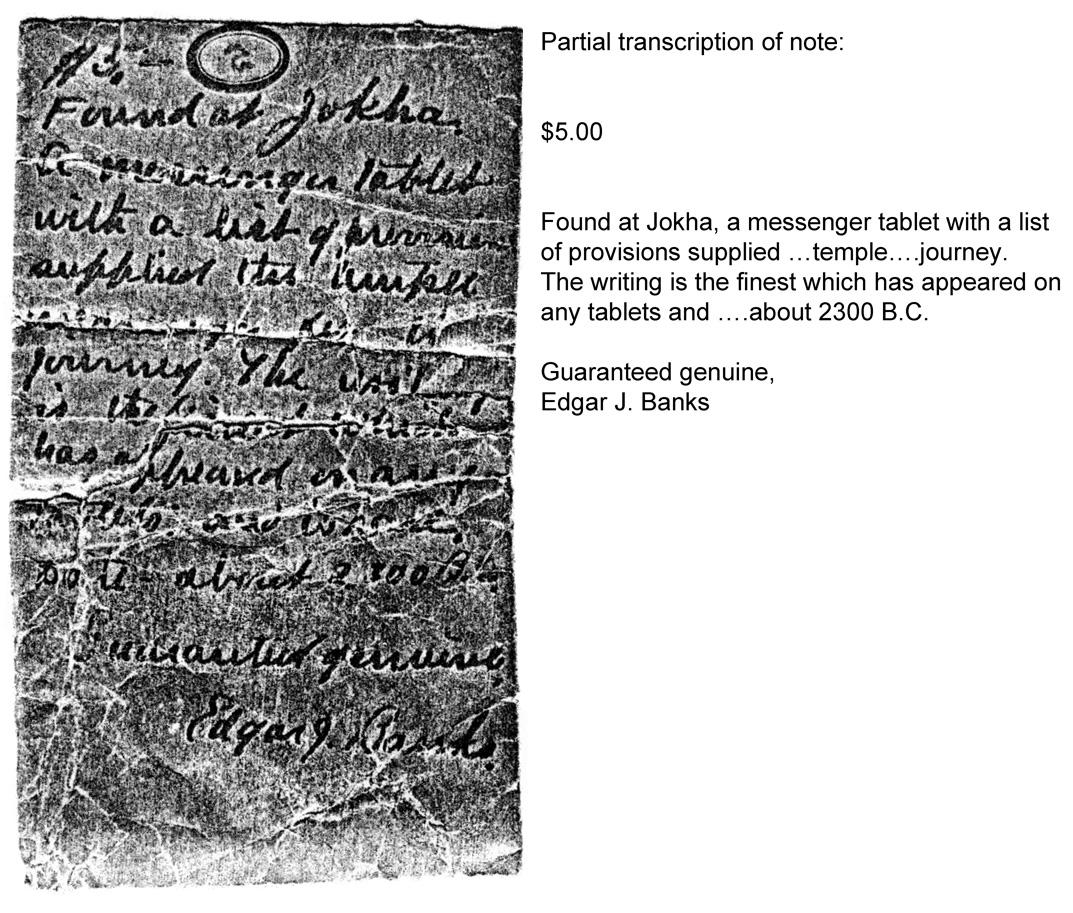 $5.—
Found at Jokha.
A messenger tablet
with a list of provisions
supplied the temple
journey. The
is the finest which
has appeared on any
tablets and
about 2300 B.C.
Guaranteed genuine,
Edgar J. Banks.
Partial transcription of note:
$5.00
Found at Jokha, a messenger tablet with a list
of provisions supplied …temple….journey.
The writing is the finest which has appeared on
any tablets and ….about 2300 B.C.
Guaranteed genuine,
Edgar J. Banks